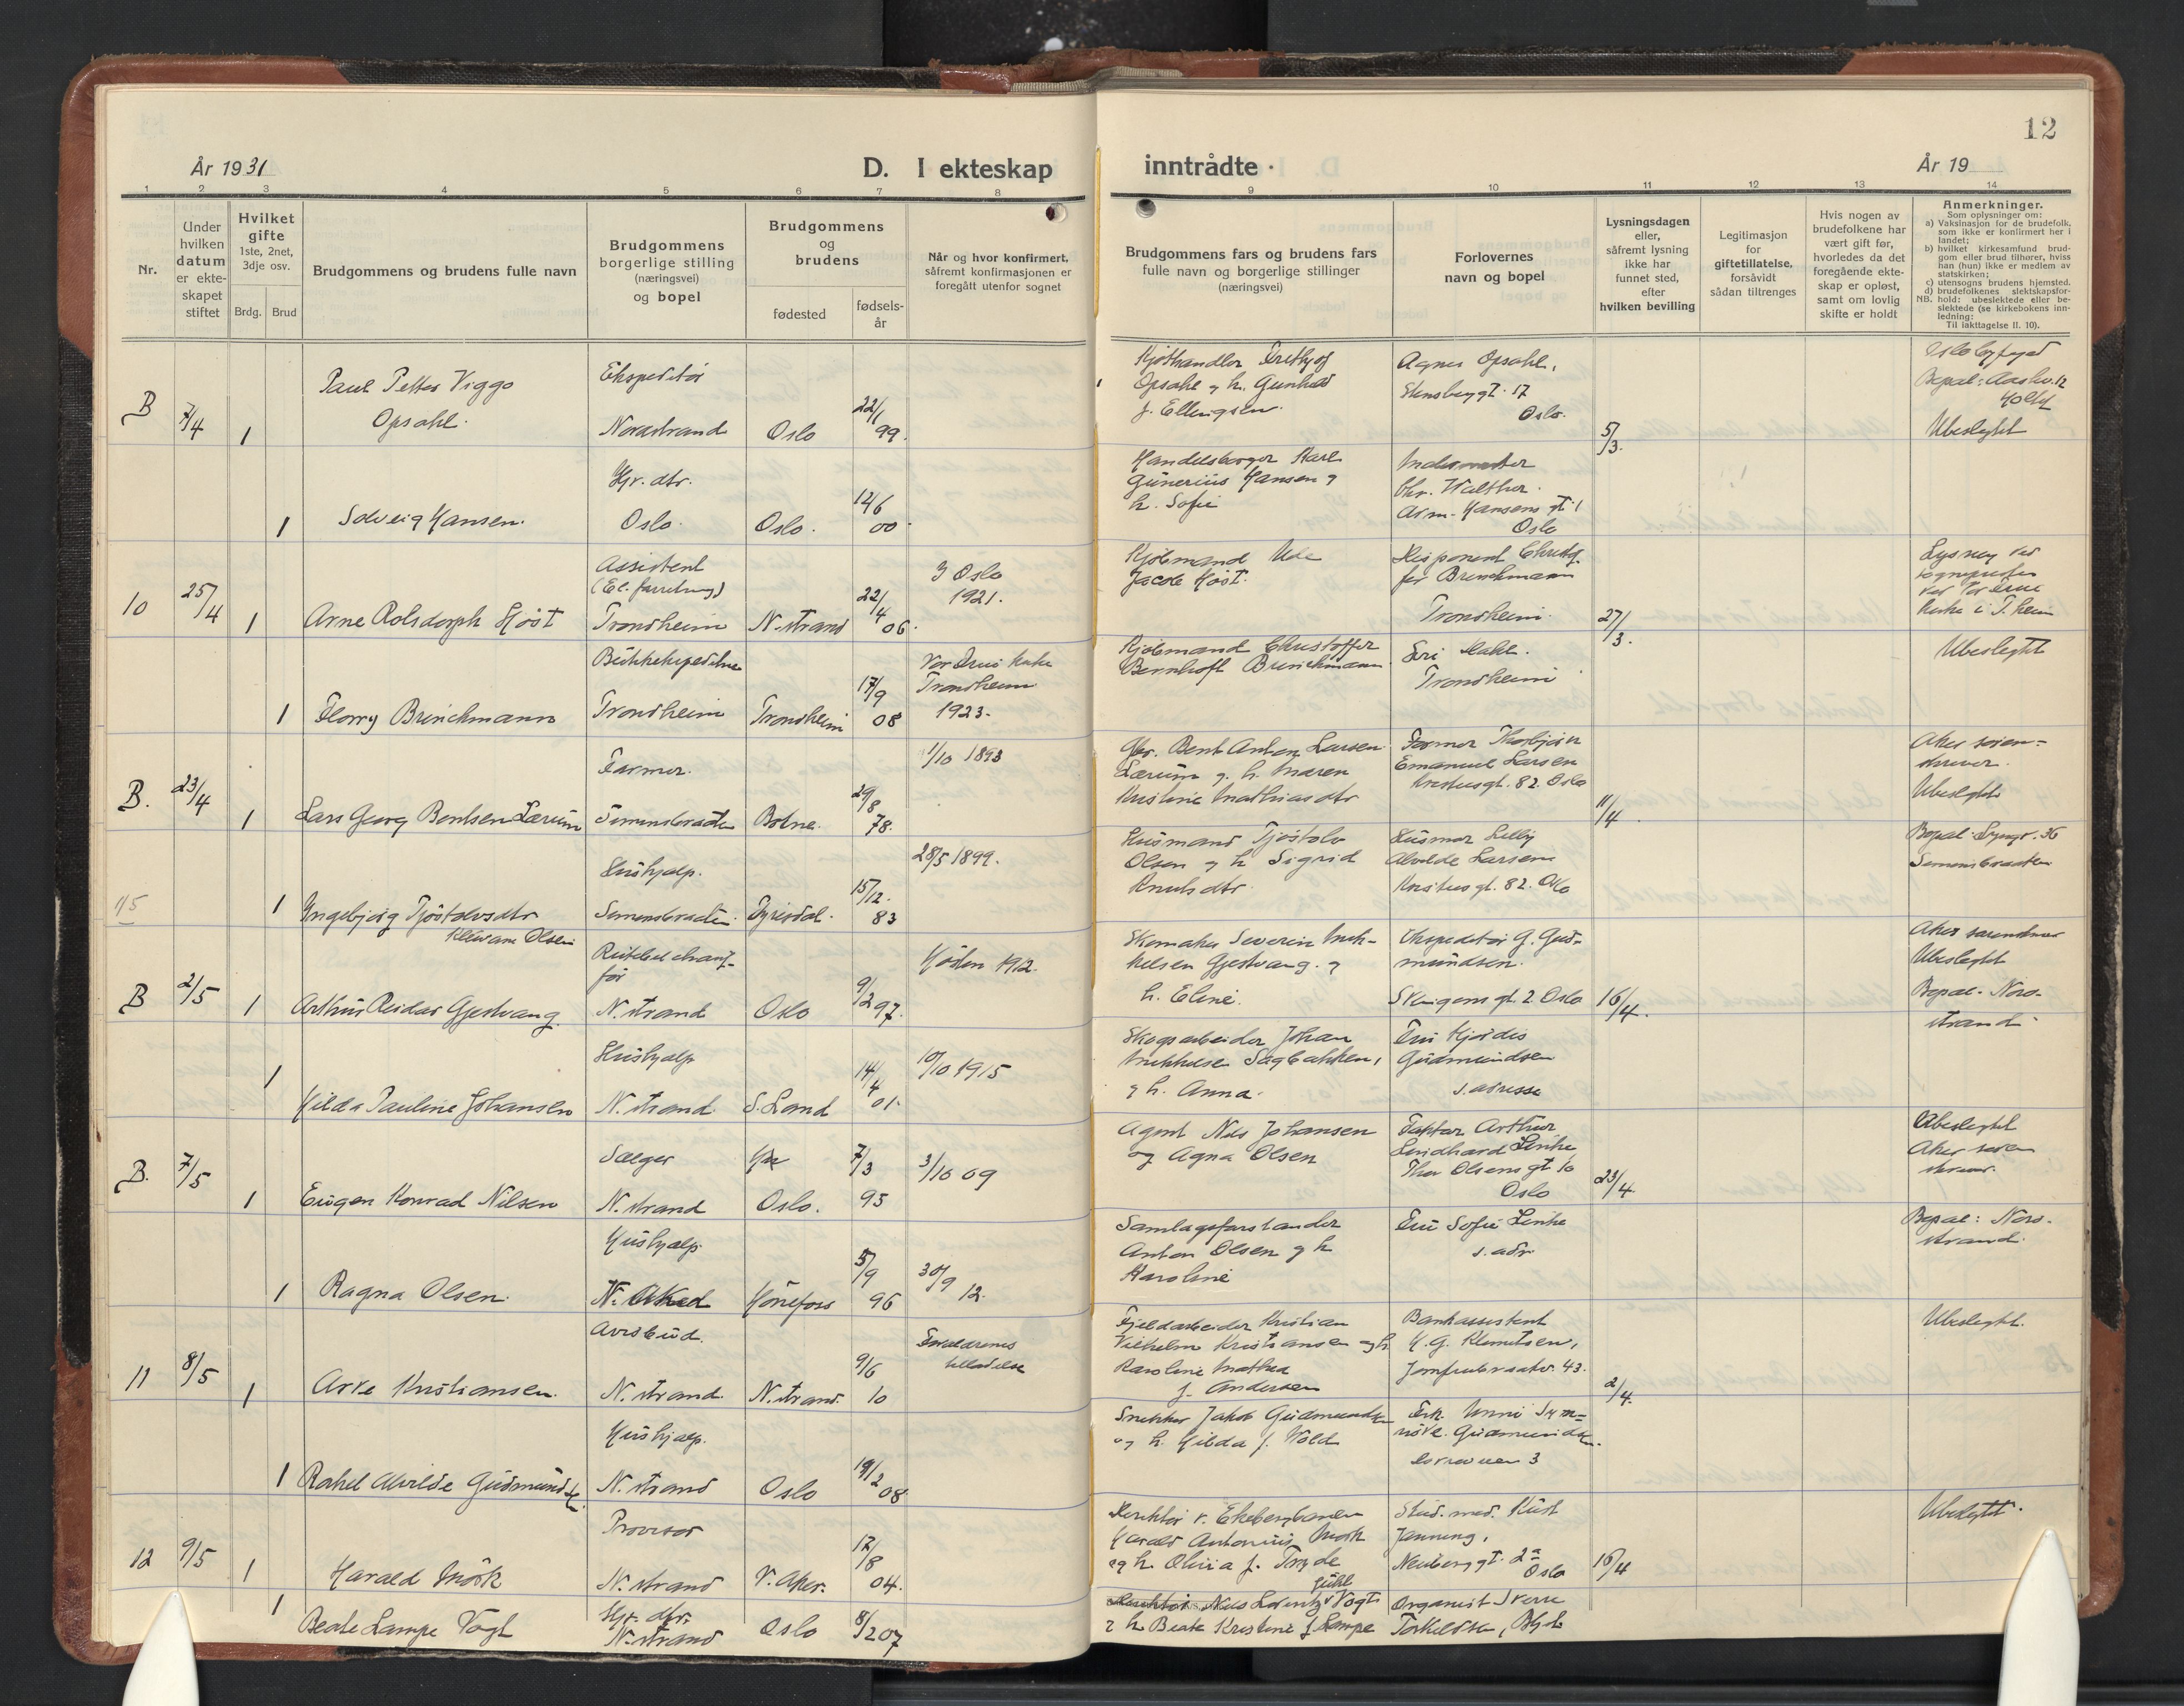 12
År 1931
D. I ekteskap
inntrådte
År 19
1 2 3 4 5 6 7 8 9 10 11 12 13 14
Nr.
Under
hvilken
datum
er ekte-
skapet
stiftet
Hvilket
gifte
1ste, 2net,
3dje osv.
Brdg. Brud
Brudgommens og brudens fulle navn
Brudgommens
borgerlige stilling
(næringsvei)
og bopel
Brudgommens
og
brudens
fødested
fødsels-
år
Når og hvor konfirmert,
såfremt konfirmasjonen er
foregått utenfor sognet
Brudgommens fars og brudens fars
fulle navn og borgerlige stillinger
(næringsvei)
Forlovernes
navn og bopel
Lysningsdagen
eller,
såfremt lysning
ikke har
funnet sted,
efter
hvilken bevilling
Legitimasjon
for
giftetillatelse,
forsåvidt
sådan tiltrenges
Hvis nogen av
brudefolkene har
vært gift før,
hvorledes da det
foregående ekte-
skap er opløst,
samt om lovlig
skifte er holdt
Anmerkninger.
Som oplysninger om:
a) Vaksinasjon for de brudefolk,
som ikke er konfirmert her i
landet;
b) hvilket kirkesamfund brud-
gom eller brud tilhører, hviss
han (hun) ikke er medlem av
statskirken;
c) utensogns brudens hjemsted.
d) brudefolkenes slektskapsfor-
NB. hold: ubeslektede eller be-
slektede (se kirkebokens inn-
ledning:
Til iakttagelse II. 10).
B 7/4 1
Paul Petter Viggo
Opsahl.
Ekspeditør
Nordstrand
Oslo
22/1 99.
Kjøthandler Fritjof
Opsahl og h. Gunhild
f. Ellingsen.
Agnes Opsahl,
Stensberggt. 17
Oslo.
5/3.
Oslo byfogd
Ubeslegtet
1
Solveig Hansen.
Hjr. dtr.
Oslo.
Oslo.
12/6 00.
Handelsborger Karl
Gunerius Hansen og
h. Sofie
Chr. Walther.
Arm. Hansens gt. 1
Oslo
10 25/4 1
Arne Rolsdorph Høst
Assistent
Trondheim
N. strand
22/4 06.
I Oslo
1921.
Kjøbmand
Jacob Høst.
Disponent Christof-
fer Brinchmann
Trondheim.
27/3.
1
Florry Brinchmann
Trondheim
Trondheim
17/9 08
Vor Frue kirke
Trondheim
1923.
Kjøbmand Christoffer
Bernhoft Brinchmann
Siri Dahl.
Trondheim
Ubeslegtet
B. 23/4 1
Lars Georg Bentsen Lærum
Farmer.
Simensbraaten
Botne.
29/8 78.
1/10 1893
Gbr. Bent Anton Larsen
Lærum og h. Maren
Kristine Mathiasdtr
Farmer Thorbjørn
Emanuel Larsen
gt. 82. Oslo
11/4.
Aker soren-
skriver.
Ubeslegtet
15 1
Ingebjørg Tjøstolvsdtr
Olsen
Hushjælp.
Simensbraaten.
Fyresdal.
15/12. 83
28/5 1899.
Husmand Tjøstolv
Olsen og h. Sigrid
Knutsdtr.
Husmor Lilly
Alvilde Larsen
gt. 82. Oslo
Simensbraaten
B 2/5 1
Arthur Reidar Gjestvang.
Rutebilchauf-
før
N. strand
Oslo
9/2 97.
Høsten 1912.
Skomaker Severin Mik-
kelsen Gjestvang. og
h. Eline.
Ekspeditør G. Gud-
mundsen.
gt. 2. Oslo
16/4.
Aker sorenskriver
Ubeslegtet
Bopæl. Nord-
strand.
1
Hilda Pauline Johansen
Hushjælp
N. strand.
S. Land
14/4 01.
10/10 1915
Skogsarbeider Johan
Mikkelsen Sagbakken,
og h. Anna.
Fru Hjørdis
Gudmundsen
s. adresse
B. 7/5 1
Eugen Konrad Nilsen
Sælger
N. strand
Oslo.
7/3 95
3/10 09
Agent Nils Johansen
og Agna Olsen
Faktor Arthur
Lindhard Linke,
Thor Olsens gt 10
Oslo
23/4.
Ubeslegtet
Aker soren
skriver.
1
Ragna Olsen.
Hushjælp.
Hønefoss
5/9 96
30/9 12.
Samlagsforstander
Anton Olsen og h
Karoline
Fru Sofie Linke
s. adr.
Bopæl: Nord-
strand.
11 8/5 1
Arve Kristiansen.
Avisbud.
N. strand.
N. strand.
9/6 10
Forældrenes
tilladelse
Fjeldarbeider Kristian
Vilhelm Kristiansen og h.
Karoline Mathea
f. Andersen
Bankassistent
H. G. Klemetsen,
Jomfrubraatv. 43.
2/4.
Ubeslegtet.
1
Rakel Alvilde Gudmunds.
Hushjælp.
N. strand
Oslo
19/2 08.
Snekker Jakob Gudmundsen
og h. Hilda f. Wold
Frk. Unni Syn-
nøve Gudmundsen.
12 9/5 1
Harald Mørk
Provisor
N. strand
V. Aker.
17/8 04.
Direktør v. Ekebergbanen
Harald Antonius Mørk
og h. Olivia f. Tryde
Juhl
Stud. med. Kurt
Janning,
Neuberggt. 2a
Oslo
16/4
Ubeslegtet.
1
Beate Lampe Vogt
Hjr. dtr.
N. strand
Oslo
8/2 07
Direktør Nils Lorentz Vogt
og h. Beate Kristine f. Lampe
Organist Sverre